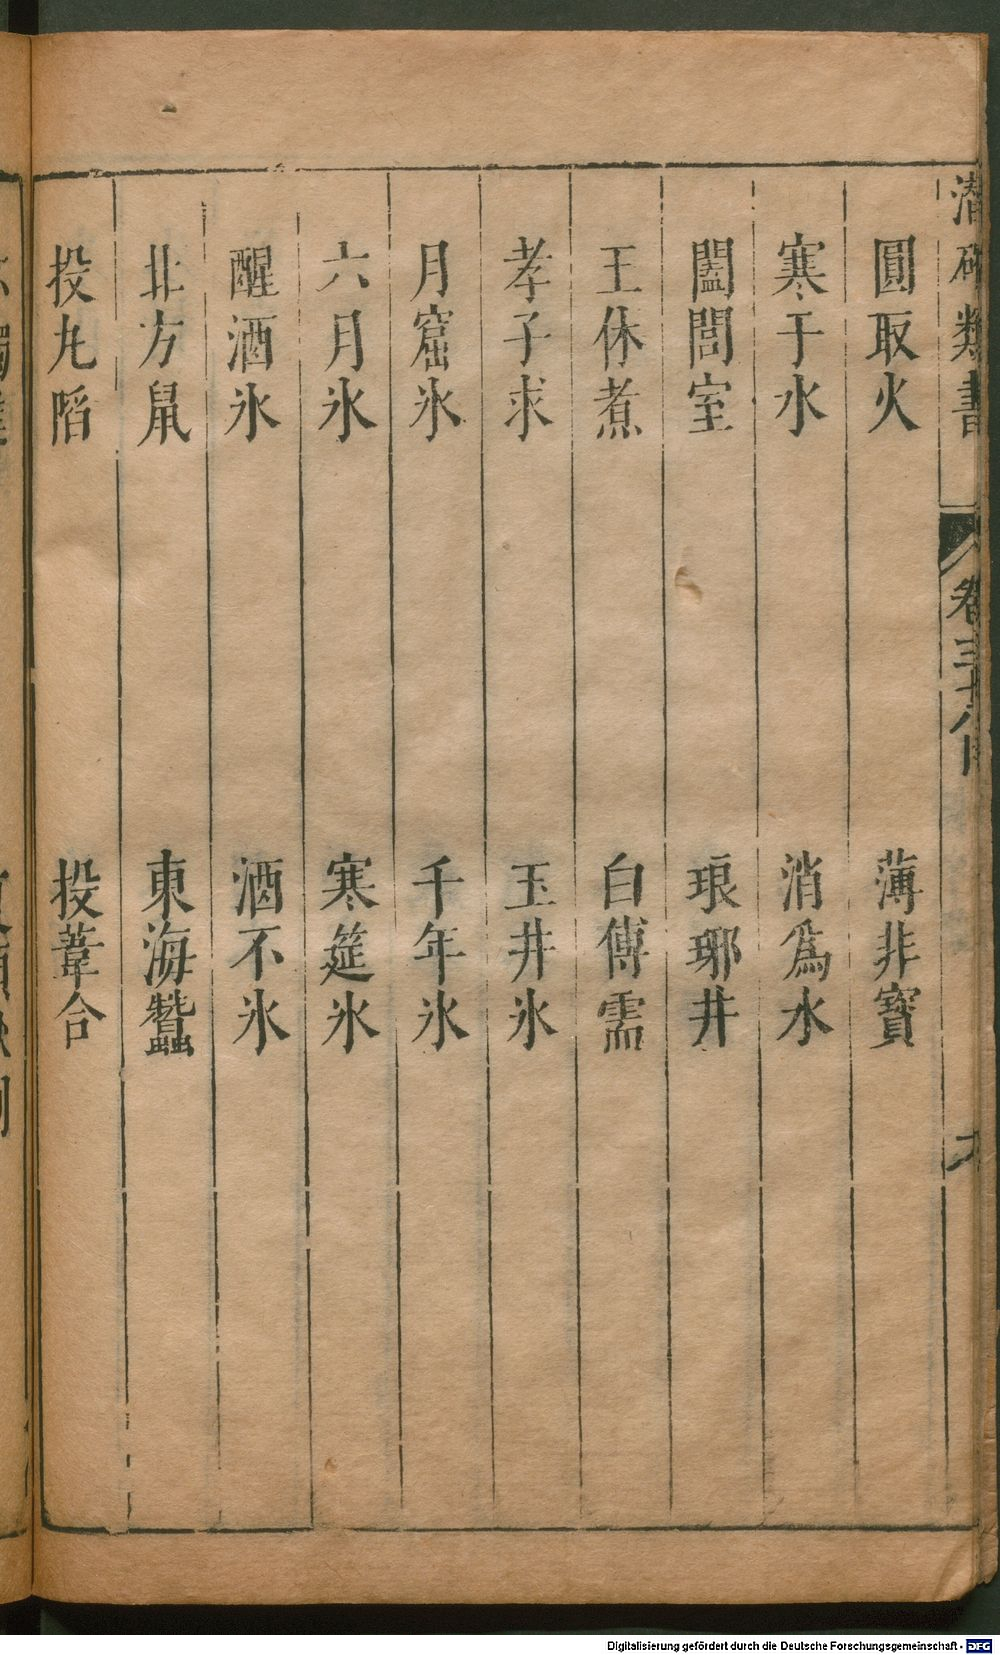 潛確類書 卷三十八目
圓取火 薄非寳
寒于水 消爲水
闔閭室 琅琊井
王休煮 白傅需
孝子求 玉井氷
月窟氷 千年氷
六月氷 寒筵氷
醒酒氷 酒不氷
北方鼠 東海蠶
投丸䧟 投葦合
Digitalisierung gefördert durch die Deutsche Forschungsgemeinschaft - DFG